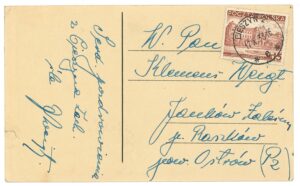 Serd. pozdrowienia
z Cieszyna Zach.
śle
W. Pan
Klemens Weigt
Janków Zaleśny
p. Raszków
pow. Ostrów
CIESZYN
POCZTA POLSKA
15